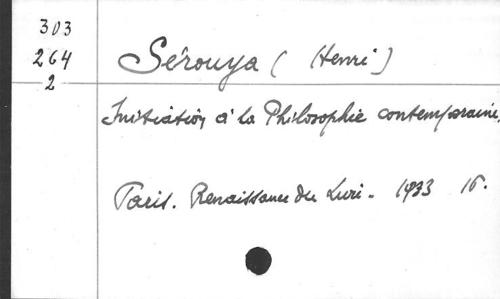 303
264
2
Sérouya (Henri)
Initiation à la Philosophie contemporaine.
Paris. Renaissance du Livre. 1933 16.